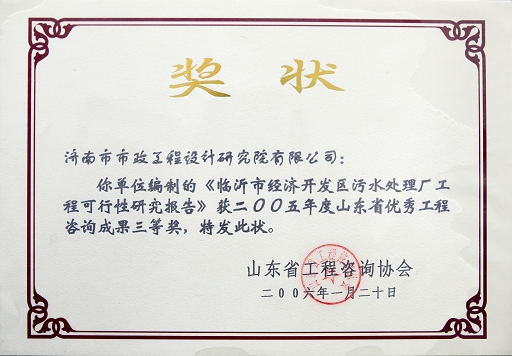 奖状
济南市市政工程设计研究院有限公司：
你单位编制的《临沂市经济开发区污水处理厂工
程可行性研究报告》获二〇〇五年度山东省优秀工程
咨询成果三等奖，特发此状。
山东省工程咨询协会
二〇〇六年一月二十日